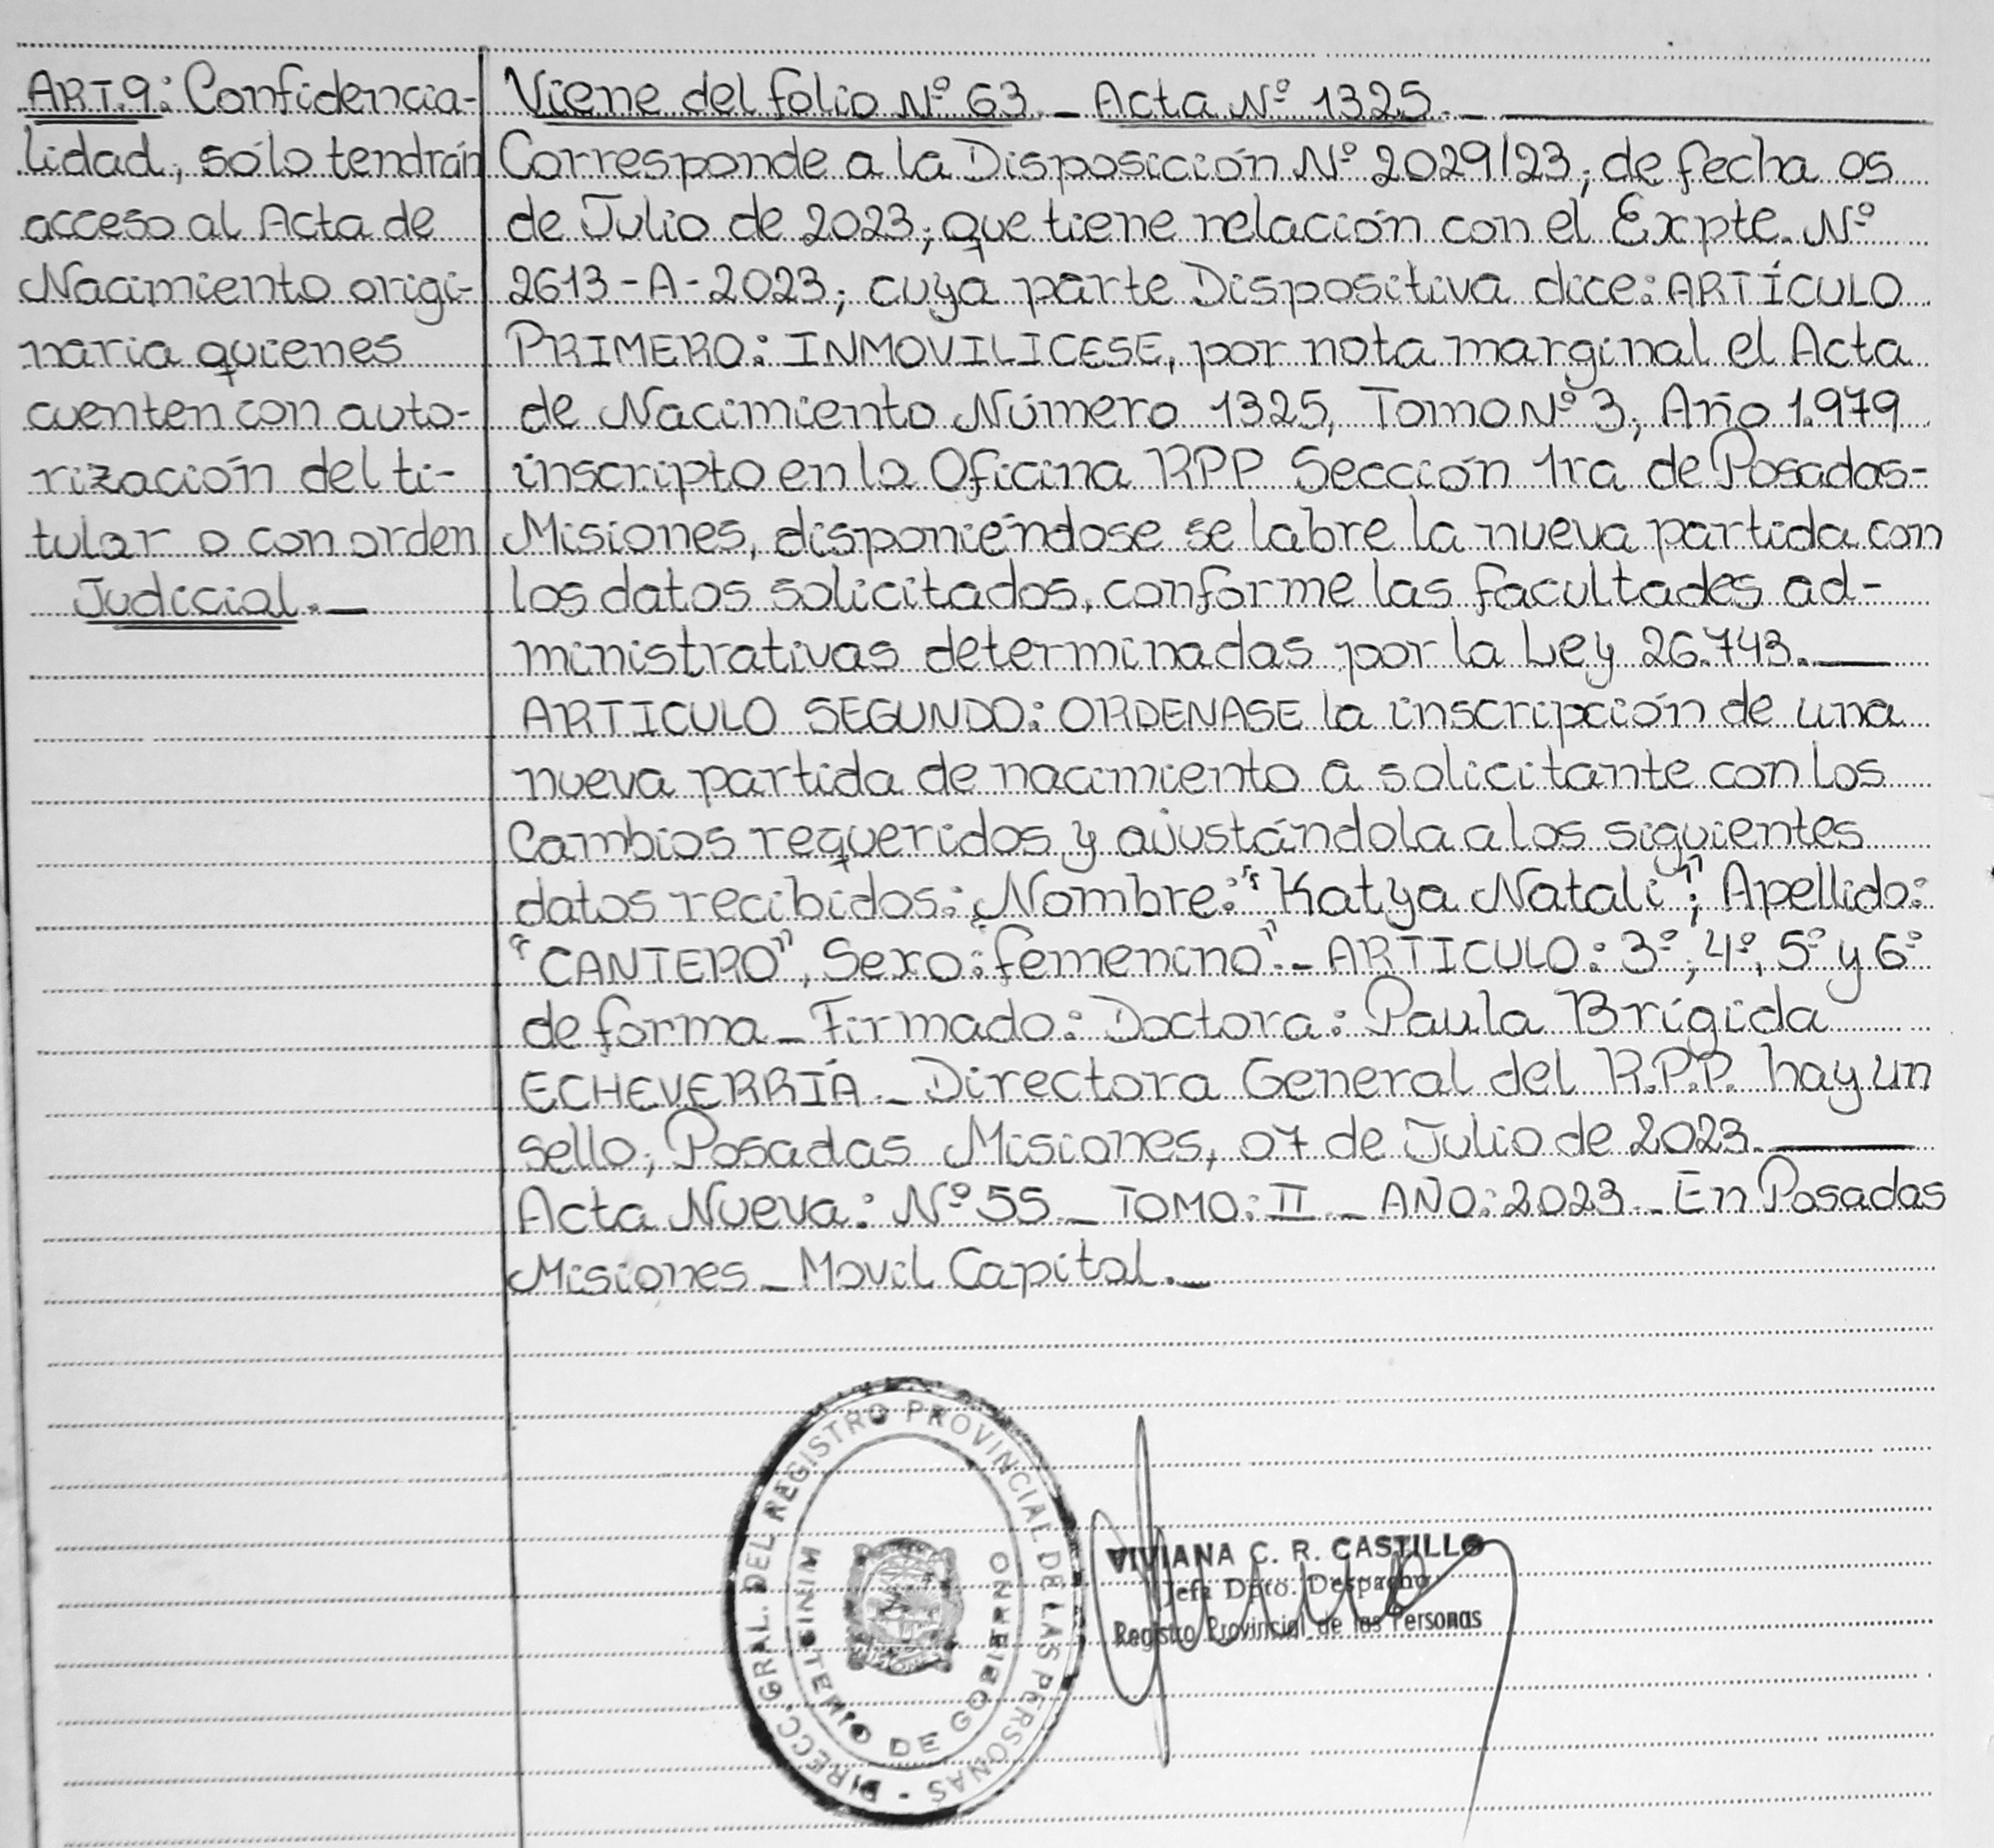 ART.9: Confidencia-
lidad, sólo tendrán
acceso al Acta de
Nacimiento origi-
naria quienes
cuenten con auto-
rización del ti-
tular o con orden
Judicial._
Viene del folio Nº 63._ Acta Nº 1325._
Corresponde a la Disposición Nº 2029/23; de fecha 05
de Julio de 2023; que tiene relación con el Expte. Nº
2613-A-2023; cuya parte Dispositiva dice: ARTÍCULO
PRIMERO: INMOVILICESE, por nota marginal el Acta
de Nacimiento Número 1325, Tomo Nº 3; Año 1.979
inscripto en la Oficina RPP Sección 1ra de Posadas-
Misiones, disponiéndose se labre la nueva partida con
los datos solicitados, conforme las facultades ad-
ministrativas determinadas por la Ley 26.743.__
ARTICULO SEGUNDO: ORDENASE la inscripción de una
nueva partida de nacimiento a solicitante con los
Cambios requeridos y ajustándola a los siguientes
datos recibidos: Nombre: "Katya Natali"; Apellido:
"CANTERO", Sexo: "femenino"._ ARTICULO: 3º, 4º, 5º y 6º
de forma_ Firmado: Doctora: Paula Brígida
ECHEVERRÍA._ Directora General del R.P.P. hay un
sello; Posadas Misiones, 07 de Julio de 2023.__
Acta Nueva: Nº 55_ TOMO: II_ AÑO: 2023_ En Posadas
Misiones_ Movil Capital._
DIRECC. GRAL. DEL REGISTRO PROVINCIAL DE LAS PERSONAS -
MINISTERIO DE GOBIERNO
VIVIANA C. R. CASTILLO
Jefa Dpto. Despacho
Registro Provincial de las Personas